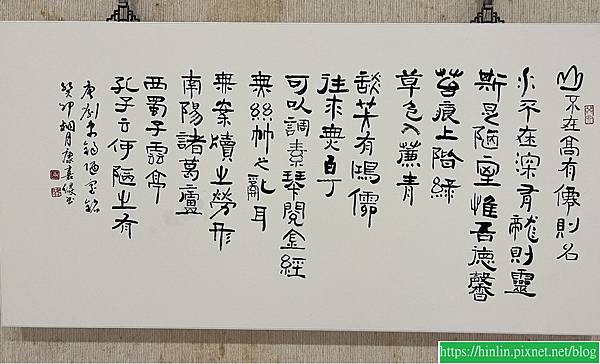 山不在高有僊則名
水不在深有龍則靈
斯是陋室惟吾德馨
苔痕上階綠
草色入簾青
談笑有鴻儒
往來無白丁
可以調素琴閱金經
無絲竹之亂耳
無案牘之勞形
南陽諸葛廬
西蜀子雲亭
孔子云何陋之有
唐劉禹錫陋室銘
癸卯桐月康書
https://hinlin.pixnet.net/blog